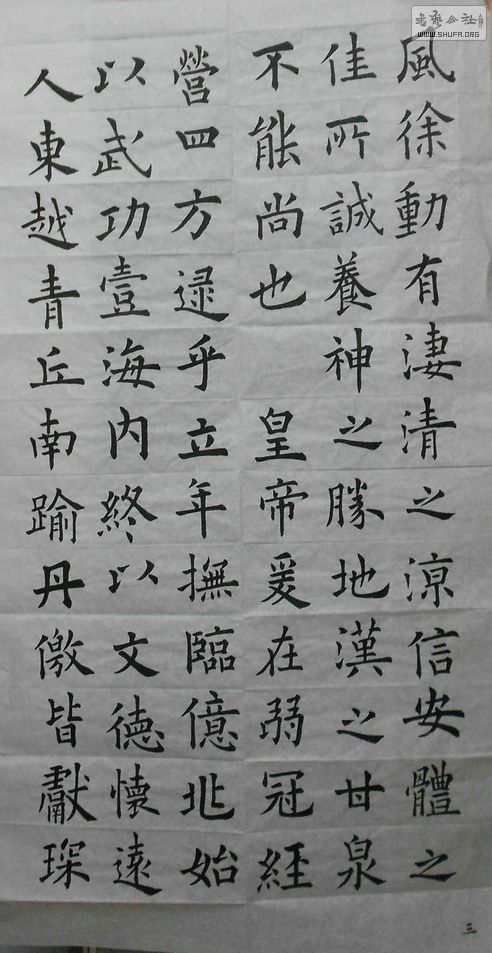 風徐動有淒清之涼信安體之
佳所誠養神之勝地漢之甘泉
不能尚也 皇帝爰在弱冠經
營四方逯乎立年撫臨億兆始
以武功壹海內終以文德懷遠
人東越青丘南踰丹儌皆獻琛
三
書法公社
WWW.SHUFA.ORG